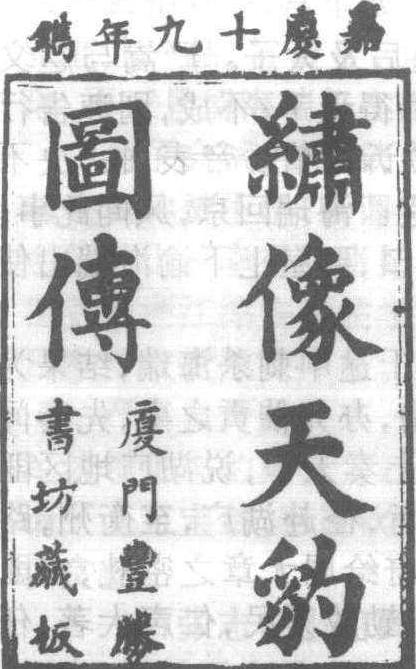 嘉慶十九年鐫
繡像天豹
圖傳
廈門豐勝
書坊藏板